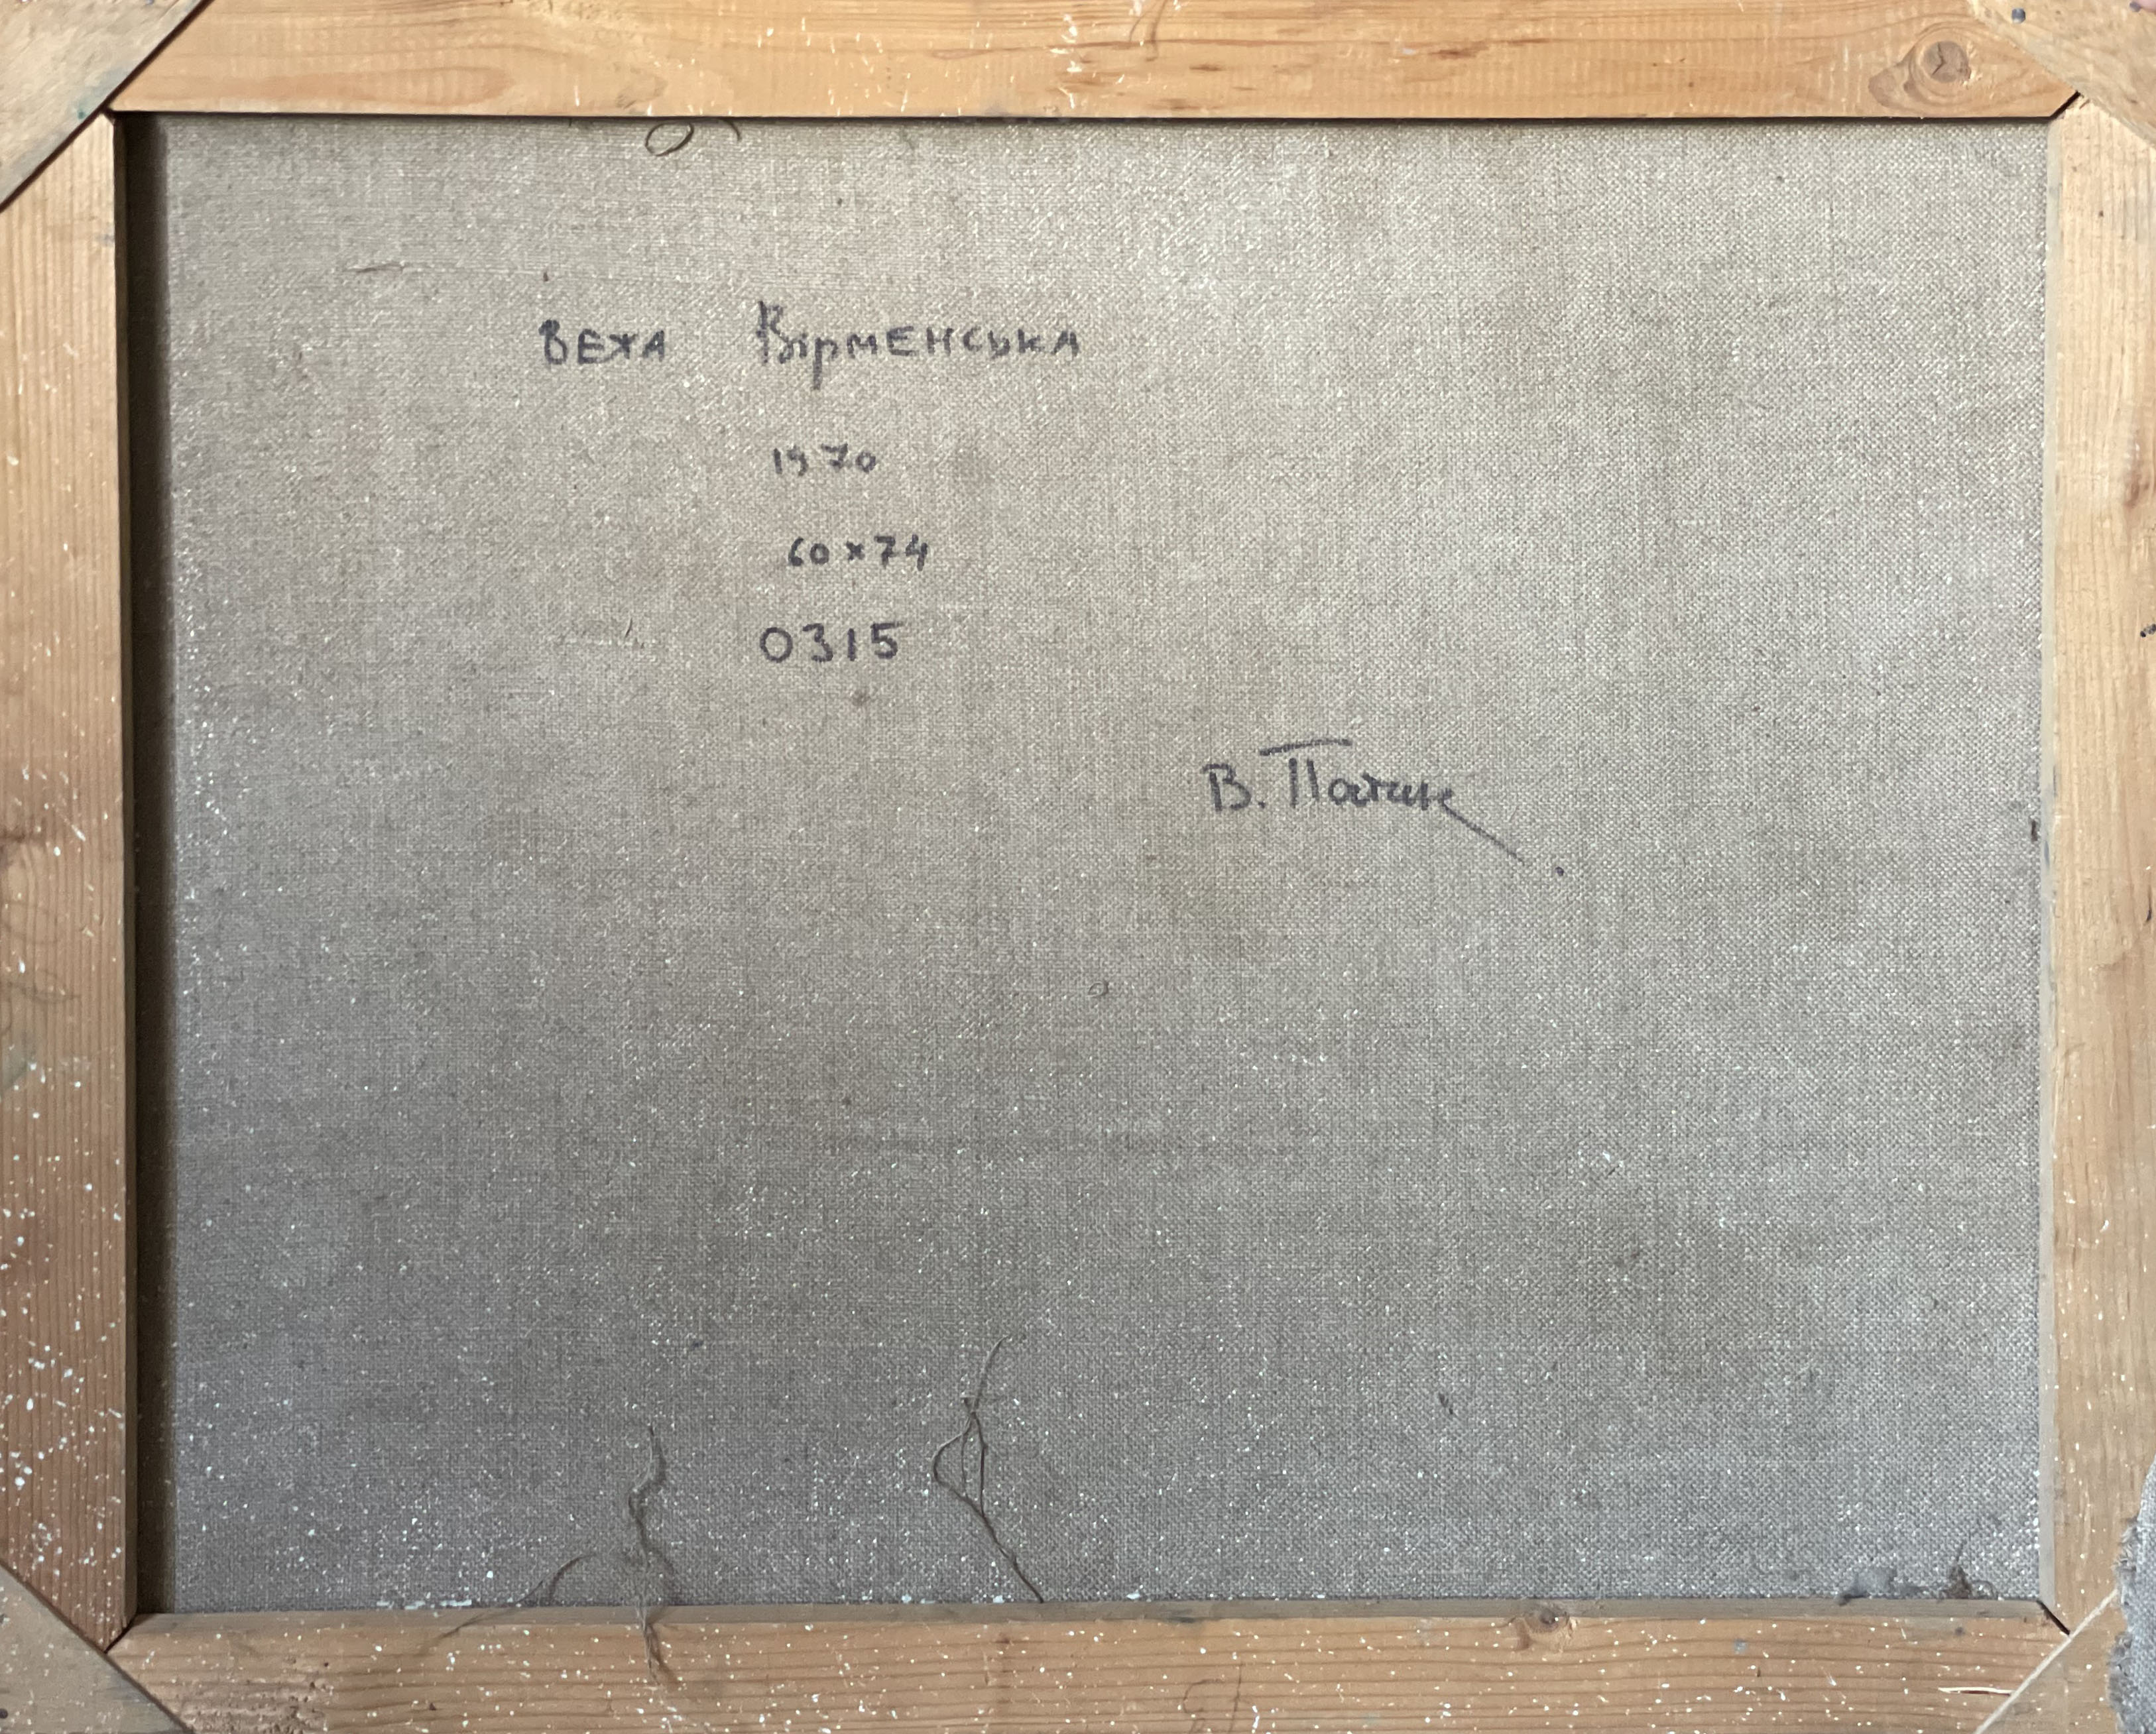 Вежа Вірменська
1970
60×74
0315
В. Патик